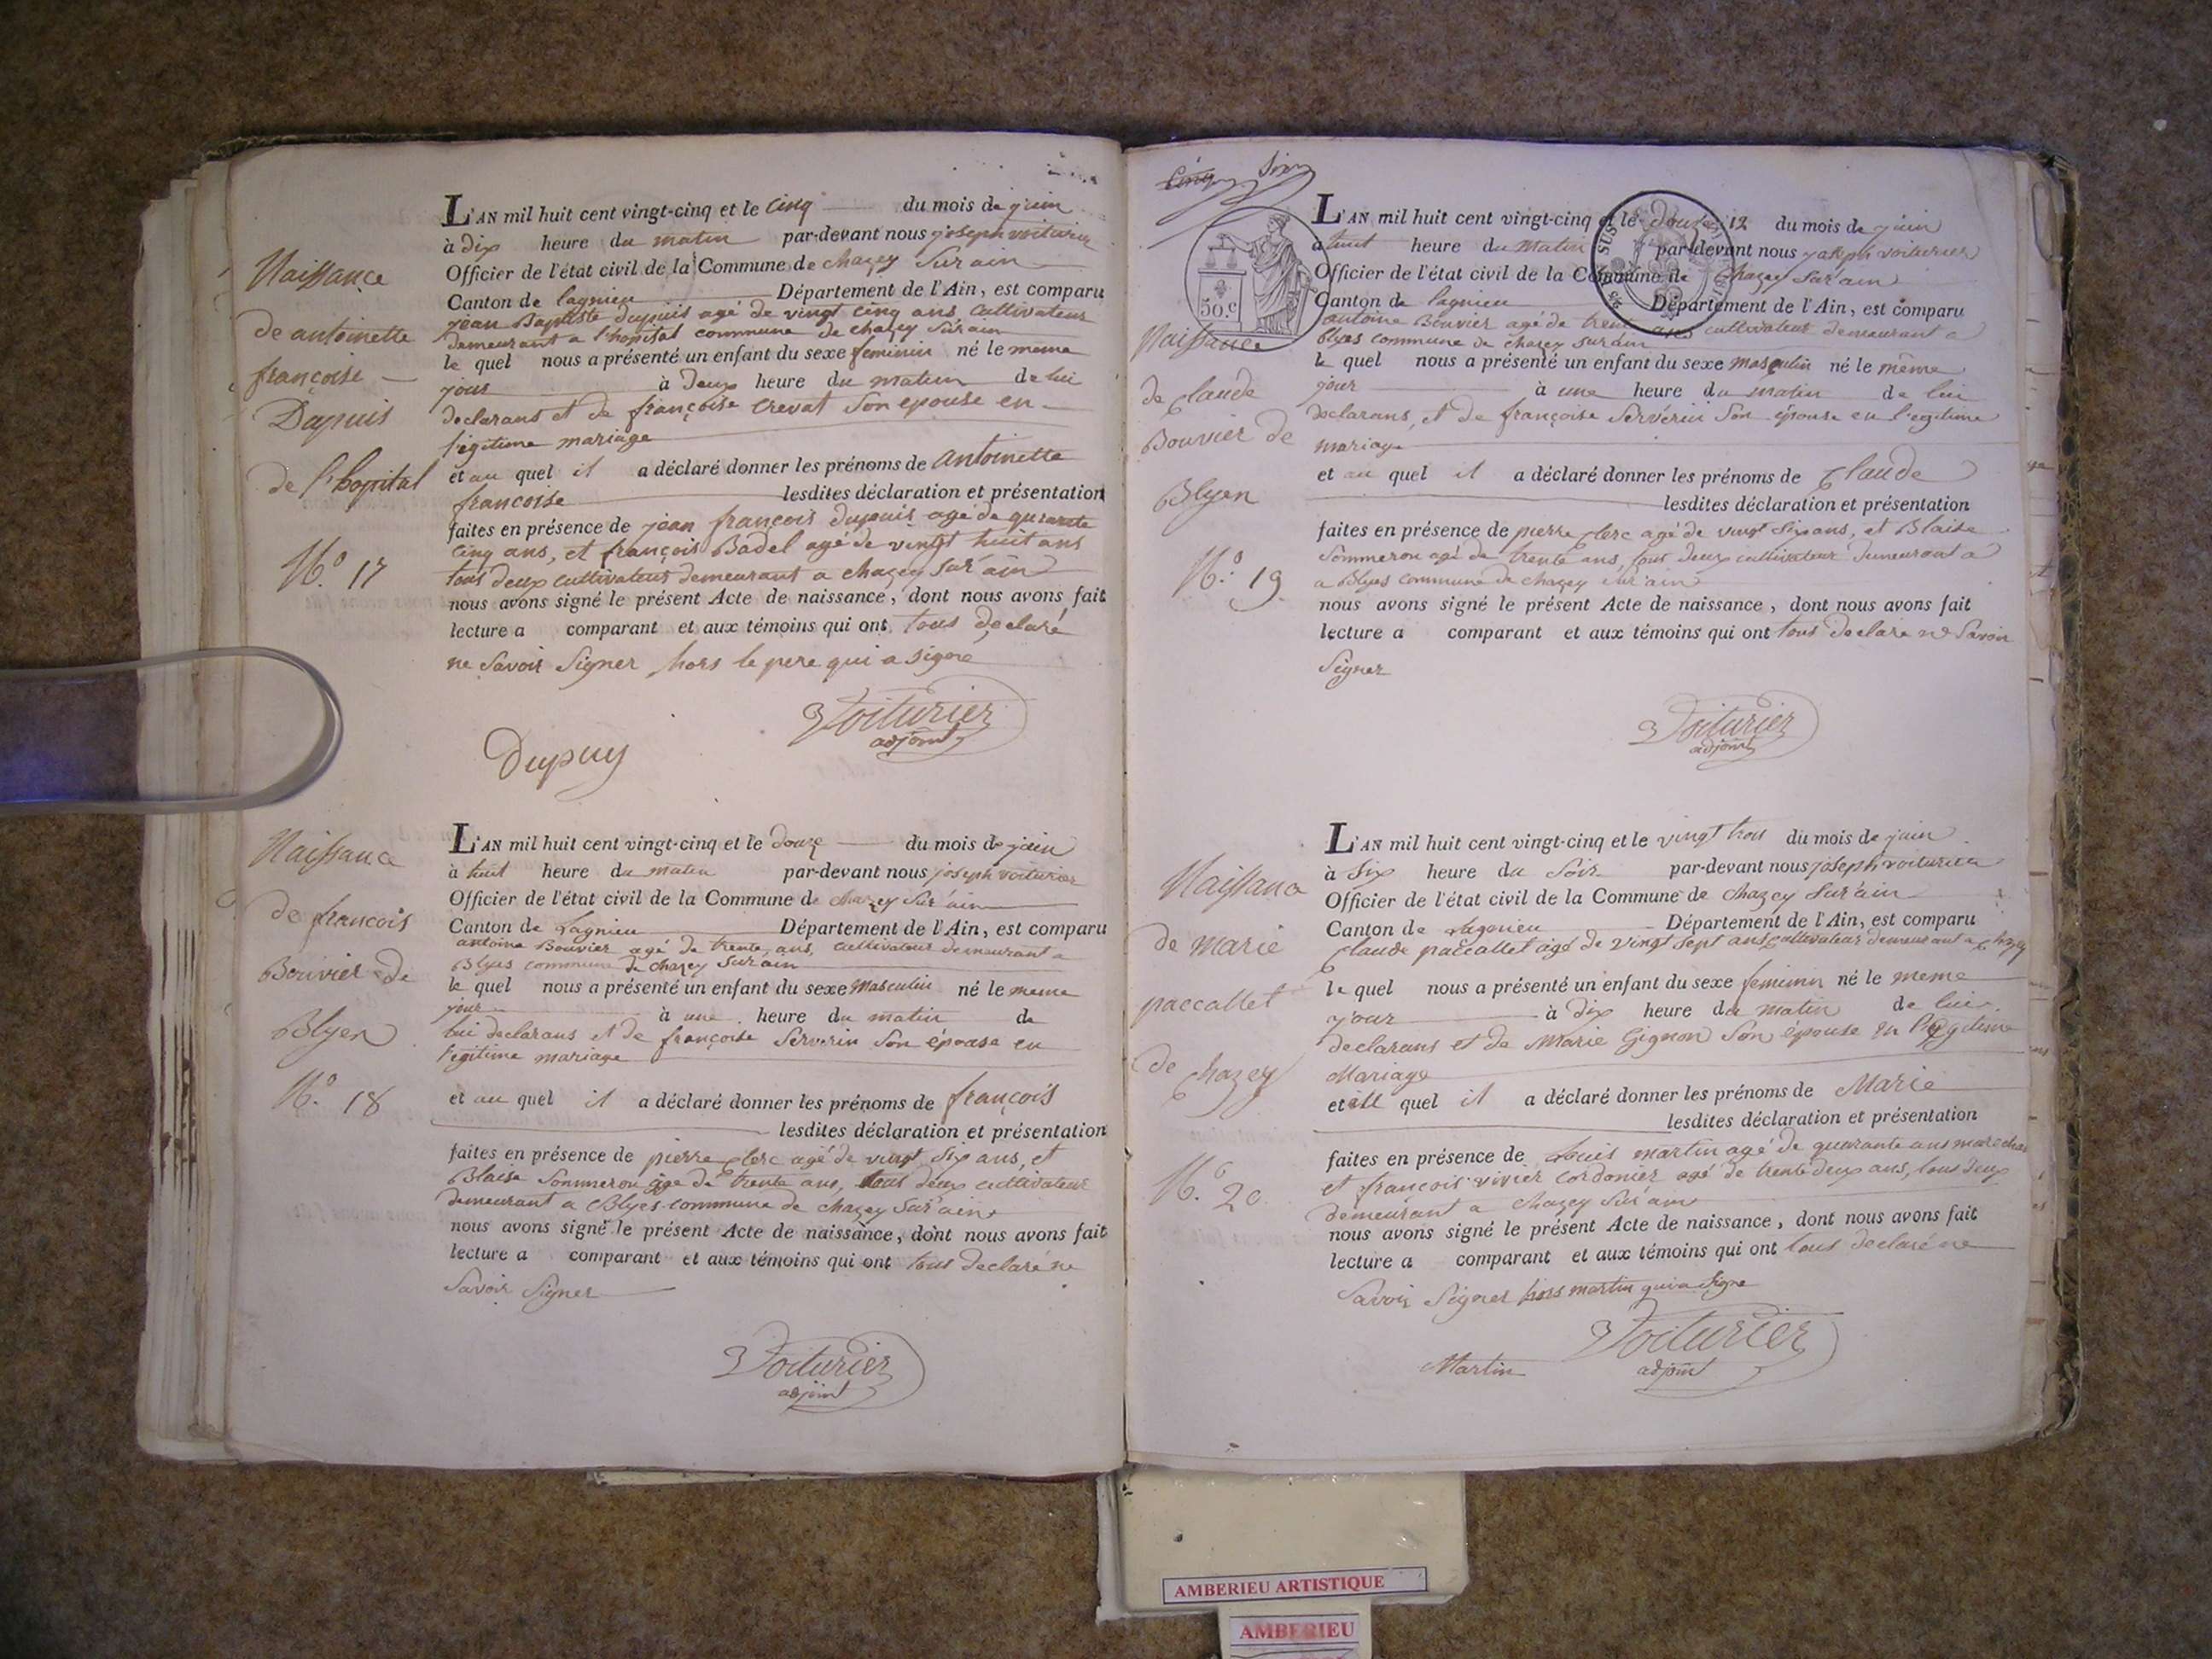 Naissance
de antoinette
françoise
Dupuis
de l'hopital
N.o 17
L'AN mil huit cent vingt-cinq et le Cinq du mois de juin
à Dix heure du matin par-devant nous joseph voiturier
Officier de l'état civil de la Commune de chazey Sur ain
Canton de lagnieu Département de l'Ain, est comparu
jean Baptiste dupuis agé de vingt cinq ans, Cultivateur
demeurant a l'hopital commune de chazey Sur ain
le quel nous a présenté un enfant du sexe feminin né le même
jour à Deux heure du matin de lui
declarans et de françoise Crevat Son épouse en
légitime mariage
et au quel il a déclaré donner les prénoms de Antoinette
francoise lesdites déclaration et présentation
faites en présence de jean françois dupuis agé de quarante
Cinq ans, et françois Badel agé de vingt huit ans
tous deux cultivateur demeurant a chazey Sur ain
nous avons signé le présent Acte de naissance, dont nous avons fait
lecture a comparant et aux témoins qui ont tous declaré
ne Savoir Signer hors le pere qui a signé
Voiturier
adjoint
Dupuy
Naissance
de francois
Bouvier de
Blyes
N.o 18
L'AN mil huit cent vingt-cinq et le Douze du mois de juin
à huit heure du matin par-devant nous joseph voiturier
Officier de l'état civil de la Commune de chazey Sur ain
Canton de Lagnieu Département de l'Ain, est comparu
antoine Bouvier agé de trente ans, cultivateur demeurant a
Blyes commune de chazey Sur ain
le quel nous a présenté un enfant du sexe masculin né le meme
jour à une heure du matin de
lui declarans et de françoise Serverin Son épouse en
légitime mariage
et au quel il a déclaré donner les prénoms de françois
lesdites déclaration et présentation
faites en présence de pierre Clerc agé de vingt Six ans, et
Blaise Sommeron age de trente ans, tous deux cultivateur
demeurant a Blyes commune de chazey Sur ain
nous avons signé le présent Acte de naissance, dont nous avons fait
lecture a comparant et aux témoins qui ont tous declaré ne
Savoir Signer
Voiturier
adjoint
Cinq Six
50.c
Naissance
de Claude
Bouvier de
Blyes
N.o 19
L'AN mil huit cent vingt-cinq et le douze 12 du mois de juin
a huit heure du matin par-devant nous joseph voiturier
Officier de l'état civil de la Commune de Chazey Sur ain
Canton de lagnieu Département de l'Ain, est comparu
antoine Bouvier agé de trente ans cultivateur demeurant a
Blyes commune de chazey Sur ain
le quel nous a présenté un enfant du sexe masculin né le même
jour à une heure du matin de lui
declarans, et de françoise Serverin Son épouse en légitime
mariage
et au quel il a déclaré donner les prénoms de Claude
lesdites déclaration et présentation
faites en présence de pierre Clerc agé de vingt Six ans, et Blaise
Sommeron agé de trente ans, tous deux cultivateur demeurant a
a Blyes commune de chazey Sur ain
nous avons signé le présent Acte de naissance, dont nous avons fait
lecture a comparant et aux témoins qui ont tous declaré ne Savoir
Signer
Voiturier
adjoint
Naissance
de marie
paccallet
de Chazey
N.o 20
L'AN mil huit cent vingt-cinq et le vingt trois du mois de juin
à Six heure du Soir par-devant nous joseph voiturier
Officier de l'état civil de la Commune de chazey Sur ain
Canton de Lagnieu Département de l'Ain, est comparu
Claude paccallet agé de vingt Sept ans cultivateur demeurant a Chazey
le quel nous a présenté un enfant du sexe feminin né le meme
jour à Dix heure du matin de lui
declarans et de Marie Gignon Son épouse en légitime
Mariage
et au quel il a déclaré donner les prénoms de Marie
lesdites déclaration et présentation
faites en présence de Louis martin agé de quarante ans marechal
et françois vivier Cordonier agé de trente deux ans, tous deux
demeurant a Chazey Sur ain
nous avons signé le présent Acte de naissance, dont nous avons fait
lecture a comparant et aux témoins qui ont tous declaré ne
Savoir Signer hors martin qui a Signé
Voiturier
adjoint
Martin
AMBERIEU ARTISTIQUE
AMBERIEU